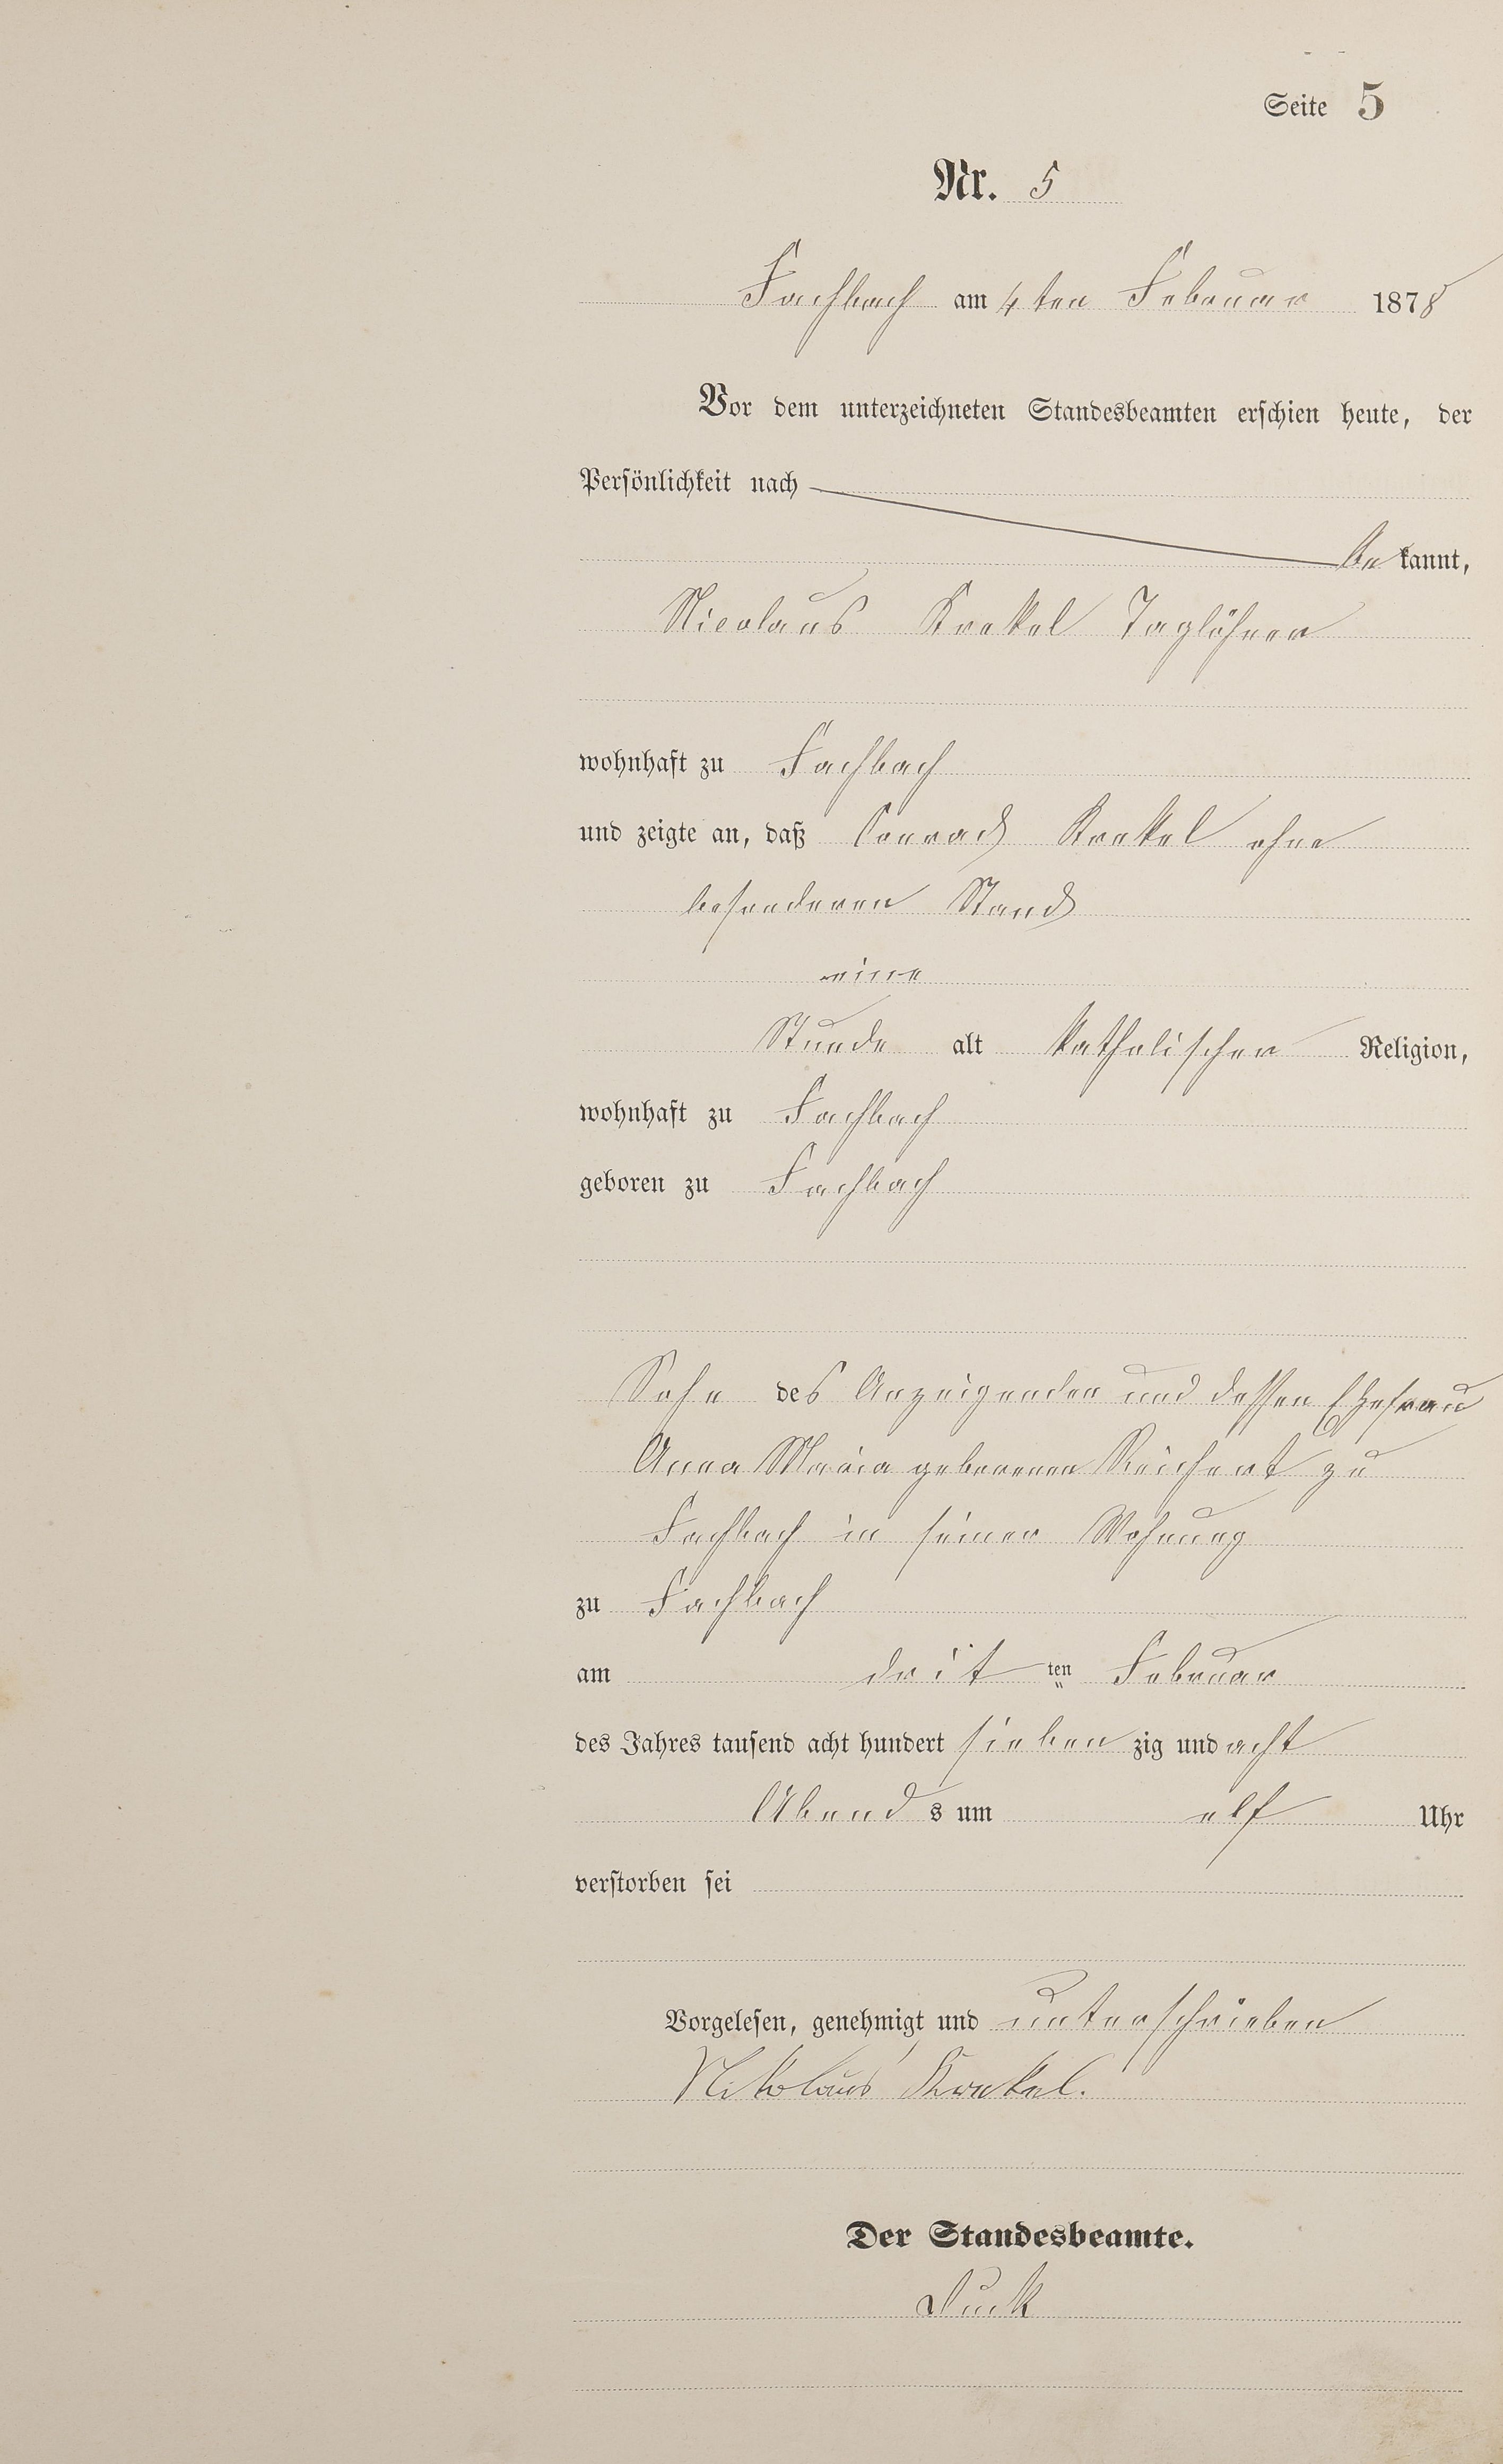 Seite 5
Nr. 5
Fachbach am 4ten Februar 1878
Vor dem unterzeichneten Standesbeamten erschien heute, der
Persönlichkeit nach
bekannt,
Nicolaus Krekel Taglöhner
wohnhaft zu Fachbach
und zeigte an, daß Conrad Krekel ohne
besonderen Stand
eine
Stunde alt katholischer Religion,
wohnhaft zu Fachbach
geboren zu Fachbach
Sohn des Anzeigenden und dessen Ehefrau
Anna Maria geborenen Reichert zu
Fachbach in seiner Wohnung
zu Fachbach
am dritten Februar
des Jahres tausend acht hundert siebenzig und acht
Abends um elf Uhr
verstorben sei
Vorgelesen, genehmigt und unterschrieben
Nikolaus Krekel.
Der Standesbeamte.